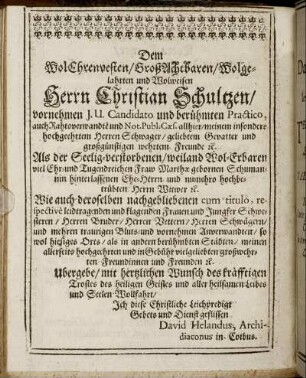 Dem
WolEhrenvesten/ GroßAchtbaren/ Wolge-
lahrten und Wolweisen
Herrn Christian Schultzen/
vornehmen J. U. Candidato und berühmten Practico,
auch Rahtsverwandtē und Not. Publ. Cæs. allhier/ meinem insondere
hochgeehrten Herrn Schwager/ geliebten Gevatter und
großgünstigen wehrtem Freunde ꝛc.
Als der Seelig-verstorbenen/ weiland Wol-Erbaren
viel Ehr- und Tugendreichen Frau Marthæ geborner Schuman-
nin hinterlassenen Ehe-Herrn und nunmehro hochbe-
trübten Herrn Witwer ꝛc.
Wie auch deroselben nachgebliebenen cum titulo, re-
spectivè leidtragenden und klagenden Frauen und Jungfer Schwe-
stern/ Herrn Bruder/ Herrn Vettern/ Herrn Schwägern/
und mehren traurigen Bluts- und vornehmen Anverwandten/ so
wol hiesiges Orts/ als in andern berühmbten Städten/ meinen
allerseits hochgeehrten und in Gebühr vielgeliebten großwehr-
ten Freundinnen und Freunden ꝛc.
Ubergebe/ mit hertzlichen Wunsch des kräfftigen
Trostes des heiligen Geistes und aller heilsamen Leibes
und Seelen Wollfahrt/
Ich diese Christliche Leichpredigt
Gebets und Dienst geflissen
David Helandus, Archi-
diaconus in Cotbus.